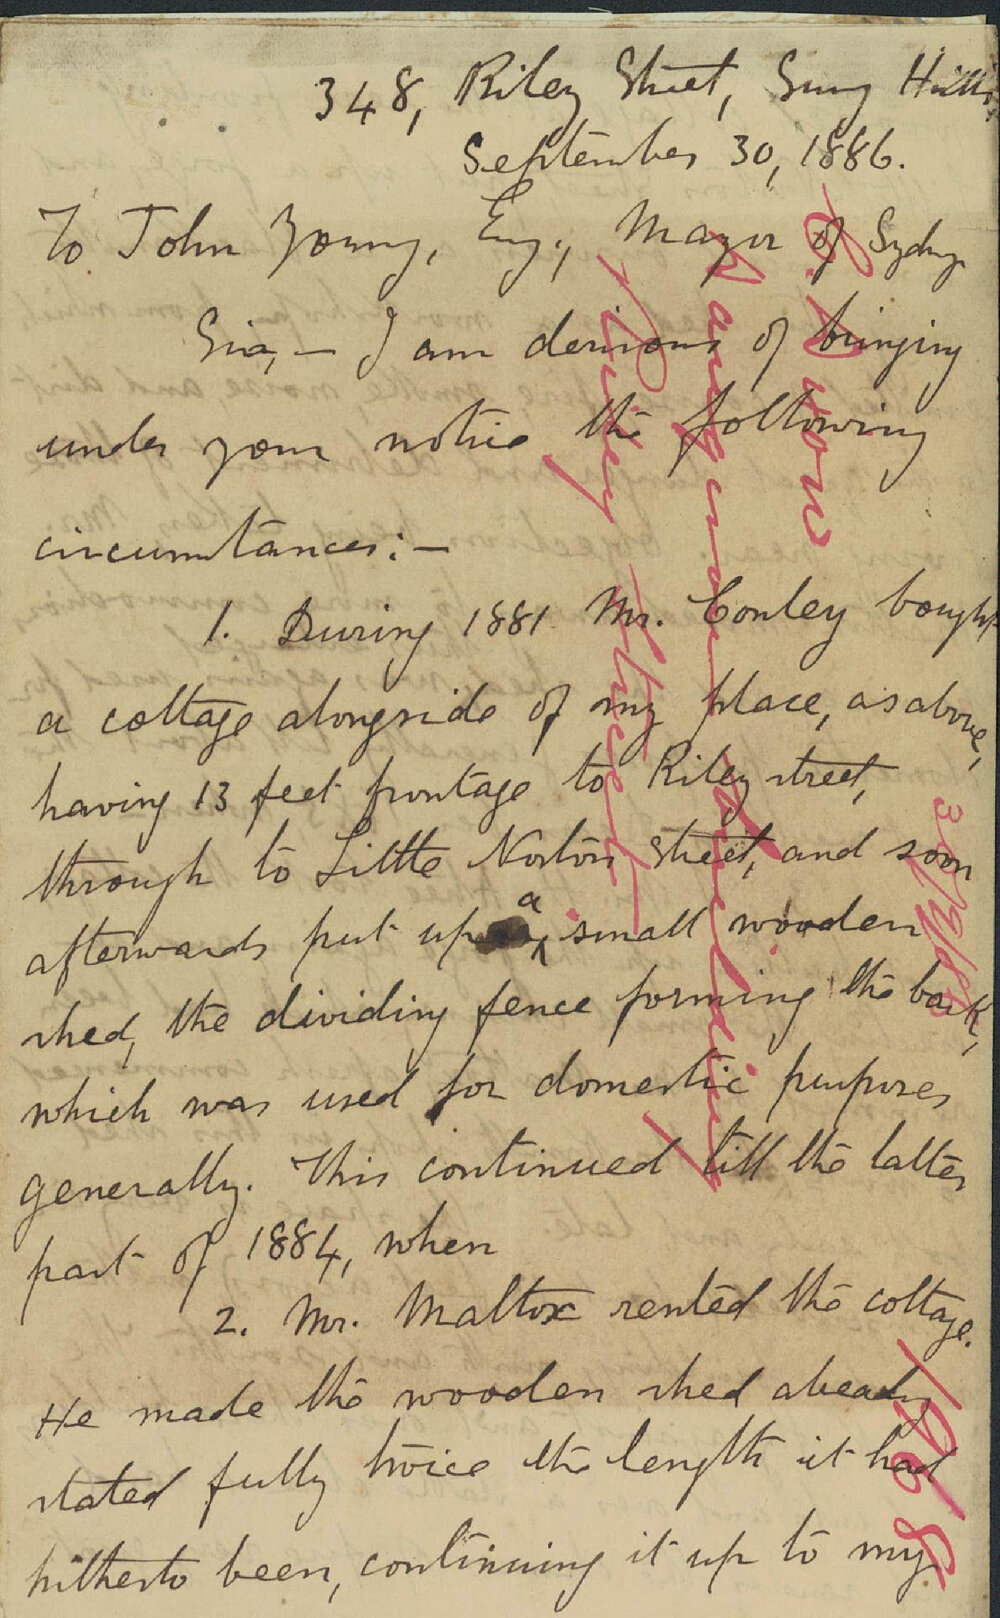 348, Riley Street, Surry Hills,
September 30, 1886.
To John Young, Esq., Mayor of Sydney
Sir, — I am desirous of bringing
under your notice the following
circumstances: —
1. During 1881 Mr. Conley bought
a cottage alongside of my place, as above,
having 13 feet frontage to Riley street,
through to Little Norton street, and soon
afterwards put up a small wooden
shed, the dividing fence forming the back,
which was used for domestic purposes
generally. This continued till the latter
part of 1884, when
2. Mr. Mattox rented the cottage.
He made the wooden shed already
stated fully twice the length it had
hitherto been, continuing it up to my
Riley Street